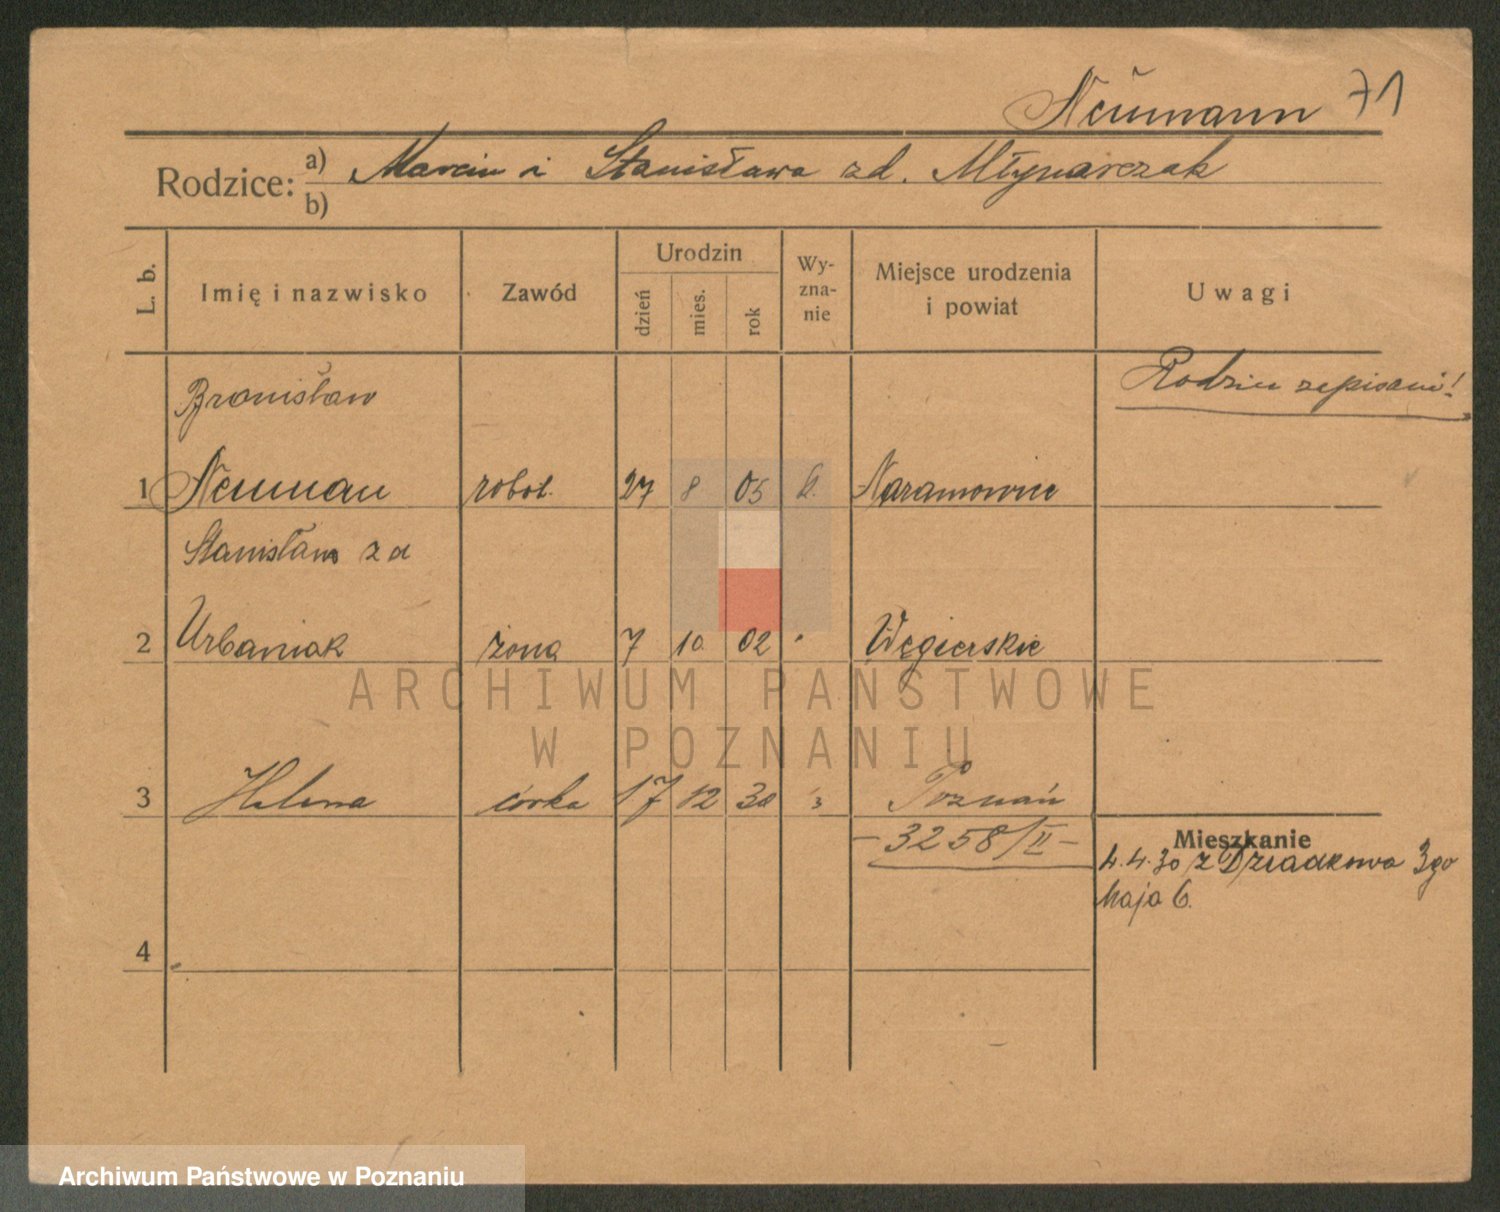 Neumann 71
Rodzice: a) Marcin i Stanisława zd. Młynarczak
b)
L. b. Imię i nazwisko Zawód Urodzin dzień mies. rok Wy-zna-nie Miejsce urodzenia i powiat Uwagi
Bronisław Rodzice zapisani!
1 Neuman robot. 27 8 05 k. Naramowice
Stanisława zd
2 Urbaniak żona 7 10 02 " Węgierskie
ARCHIWUM PAŃSTWOWE
W POZNANIU
3 Helena córka 17 12 30 " Poznań
- 3258/II - Mieszkanie
4.4.30 z Dziadkowa 3go
Maja 6.
4
Archiwum Państwowe w Poznaniu